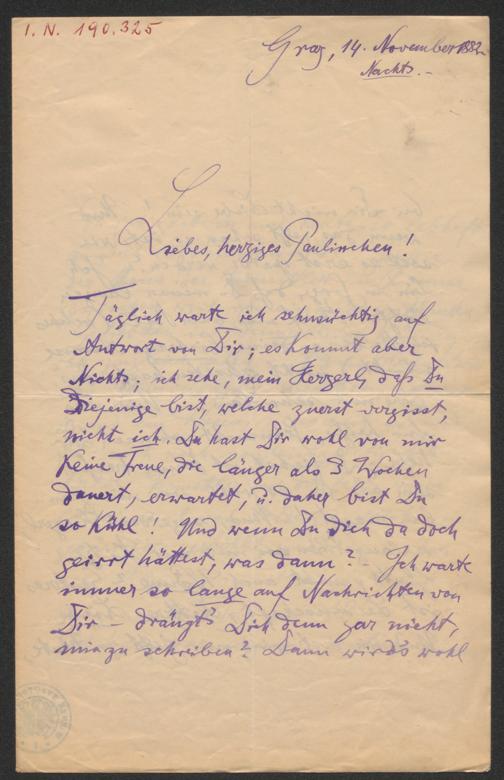 I. N. 190.325
Graz, 14. November 1882
Nachts. –
Liebes, herziges Paulinchen!
Täglich warte ich sehnsüchtig auf
Antwort von Dir; es kommt aber
Nichts; ich sehe, mein Herzerl, daß Du
Diejenige bist, welche zuerst vergisst,
nicht ich. Du hast Dir wohl von mir
keine Treue, die länger als 3 Wochen
dauert, erwartet, u. daher bist Du
so kühl! Und wenn Du dich da doch
geirrt hättest, was dann? – Ich warte
immer so lange auf Nachrichten von
Dir – drängt's Dich denn gar nicht,
mir zu schreiben? Dann wird's wohl